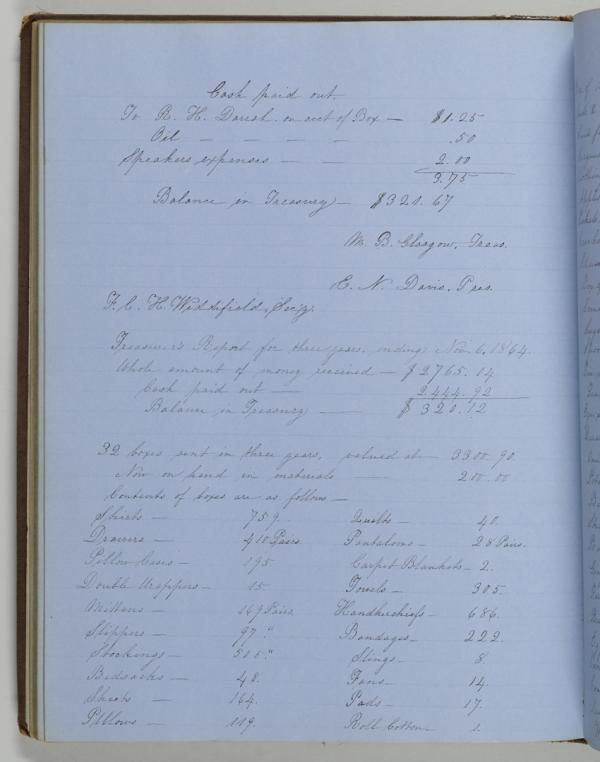 Cash paid out.
To R. H. Darrah on acct of Box — $1.25
Oil — — — — .50
Speakers expenses — — 2.00
3.75
Balance in Treasury — $321.67
M. B. Glasgow, Treas.
E. N. Davis, Pres.
F. C. H. Widdifield, Secy.
Treasurer's Report for three years, ending Nov. 6, 1864.
Whole amount of money received — $2765.04
Cash paid out — 2444.92
Balance in Treasury — $320.12
32 boxes sent in three years, valued at — 3300.90.
Now on hand in materials — 200.00
Contents of boxes are as follows —
Shirts — 759. Quilts — 40.
Drawers — 410 Pairs Pantaloons — 28 Pairs.
Pillow Cases — 195 Carpet Blankets — 2.
Double Wrappers — 15 Towels — 305.
Mittens — 169 Pairs Handkerchiefs — 686.
Slippers — 97 " Bandages — 222.
Stockings — 505 " Slings — 8.
Bedsacks — 48. Fans — 14.
Sheets — 164. Pads — 17.
Pillows — 119. Roll Cotton — 1.